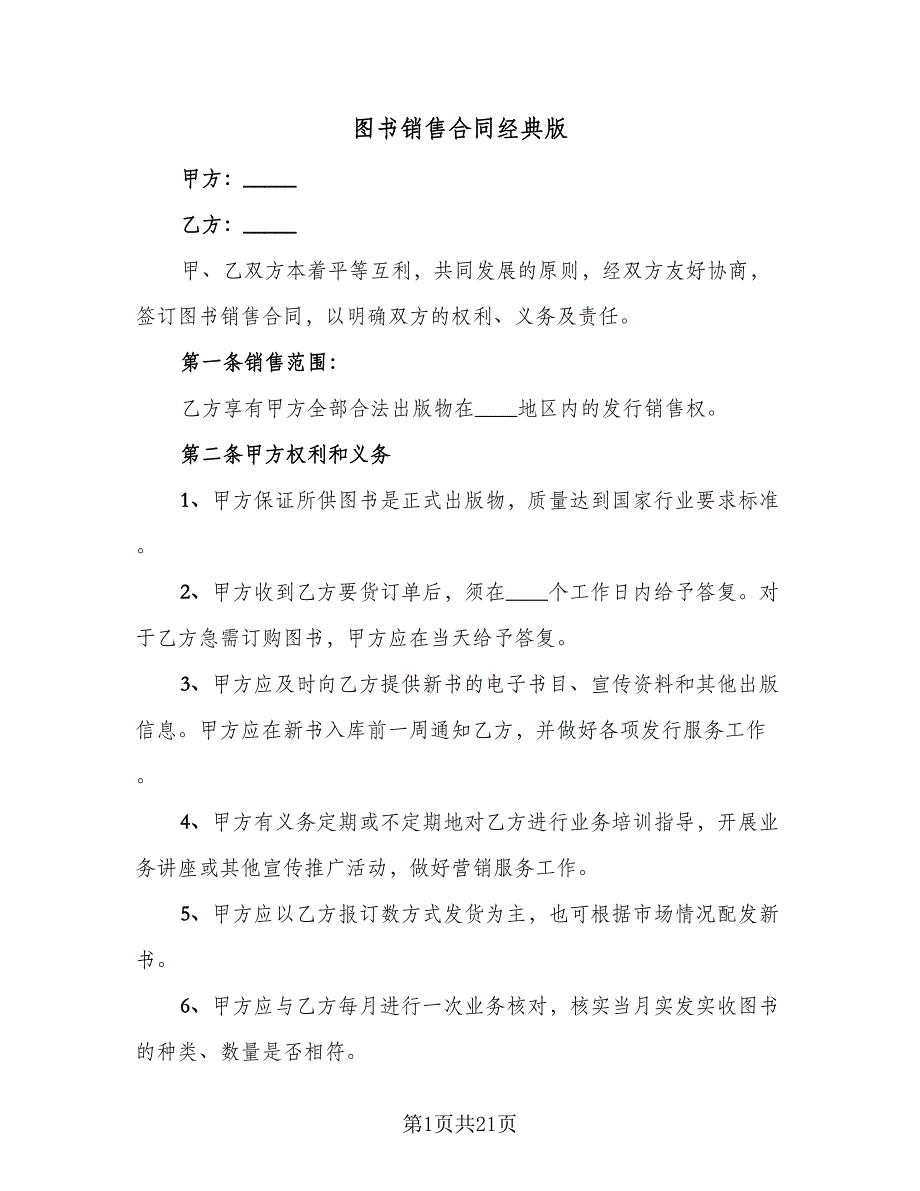 图书销售合同经典版
甲方：_____
乙方：_____
甲、乙双方本着平等互利，共同发展的原则，经双方友好协商，
签订图书销售合同，以明确双方的权利、义务及责任。
第一条销售范围：
乙方享有甲方全部合法出版物在____地区内的发行销售权。
第二条甲方权利和义务
1、甲方保证所供图书是正式出版物，质量达到国家行业要求标准
。
2、甲方收到乙方要货订单后，须在____个工作日内给予答复。对
于乙方急需订购图书，甲方应在当天给予答复。
3、甲方应及时向乙方提供新书的电子书目、宣传资料和其他出版
信息。甲方应在新书入库前一周通知乙方，并做好各项发行服务工作
。
4、甲方有义务定期或不定期地对乙方进行业务培训指导，开展业
务讲座或其他宣传推广活动，做好营销服务工作。
5、甲方应以乙方报订数方式发货为主，也可根据市场情况配发新
书。
6、甲方应与乙方每月进行一次业务核对，核实当月实发实收图书
的种类、数量是否相符。
第1页共21页